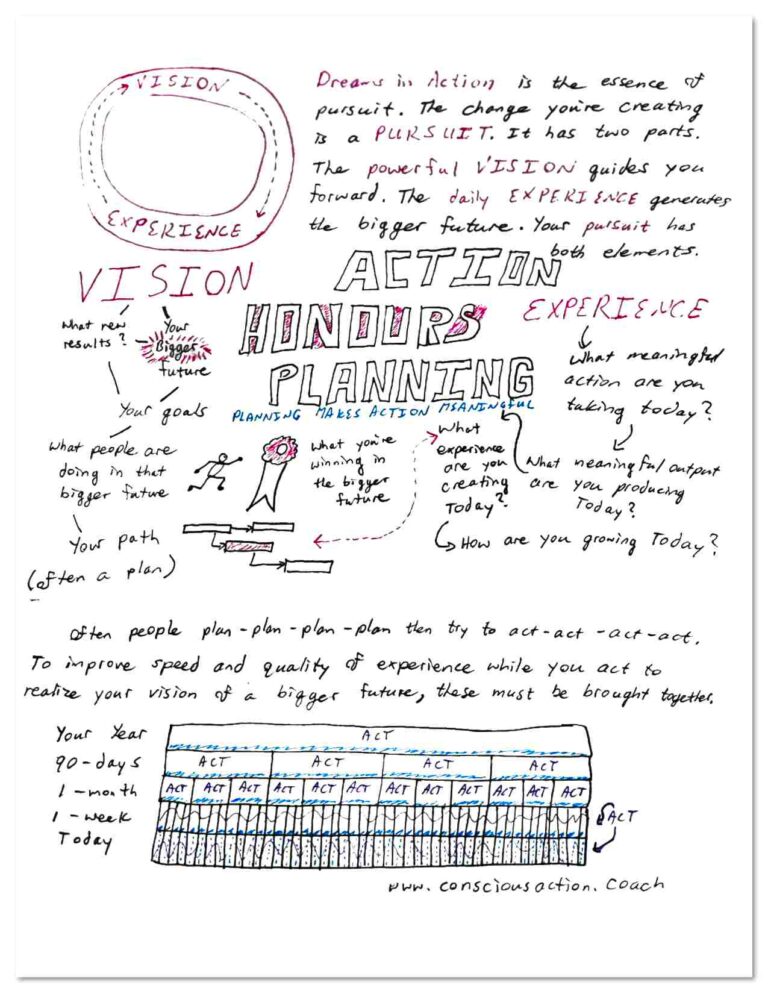 VISION
EXPERIENCE
Dreams in Action is the essence of
pursuit. The change you're creating
is a PURSUIT. It has two parts.
The powerful VISION guides you
forward. The daily EXPERIENCE generates
the bigger future. Your pursuit has
both elements.
ACTION
HONOURS
PLANNING
PLANNING MAKES ACTION MEANINGFUL
VISION
What new
results?
Your
Bigger
future
Your goals
What people are
doing in that
bigger future
What you're
winning in
the bigger
future
Your path
(often a plan)
EXPERIENCE
What meaningful
action are you
taking today?
What meaningful output
are you producing
Today?
What
experience
are you
creating
Today?
How are you growing Today?
Often people plan-plan-plan-plan then try to act-act-act-act.
To improve speed and quality of experience while you act to
realize your vision of a bigger future, these must be brought together.
Your Year ACT
90-days ACT ACT ACT ACT
1-month ACT ACT ACT ACT ACT ACT ACT ACT ACT ACT ACT ACT
1-week ACT
Today
www.consciousaction.coach